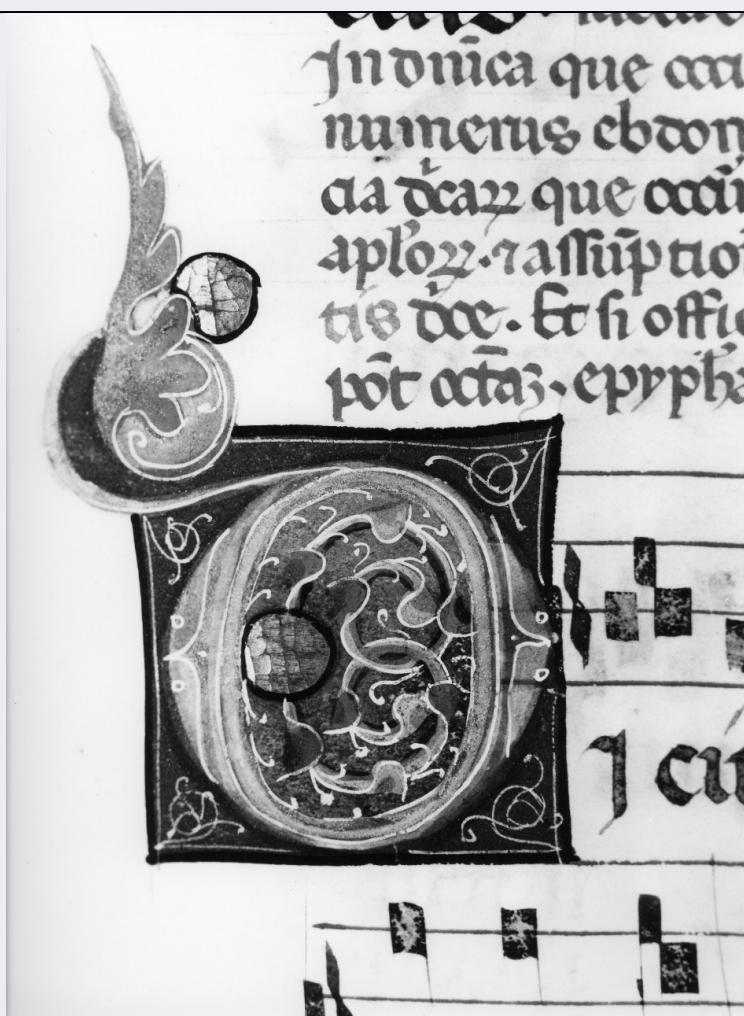 In dnīca que occ
numerus ebdom
cia dicaꝝ que occu
aploꝝ. ⁊ assūptio
tis dce. Et si offi
pōt octaꝫ. epypha
D
I ci